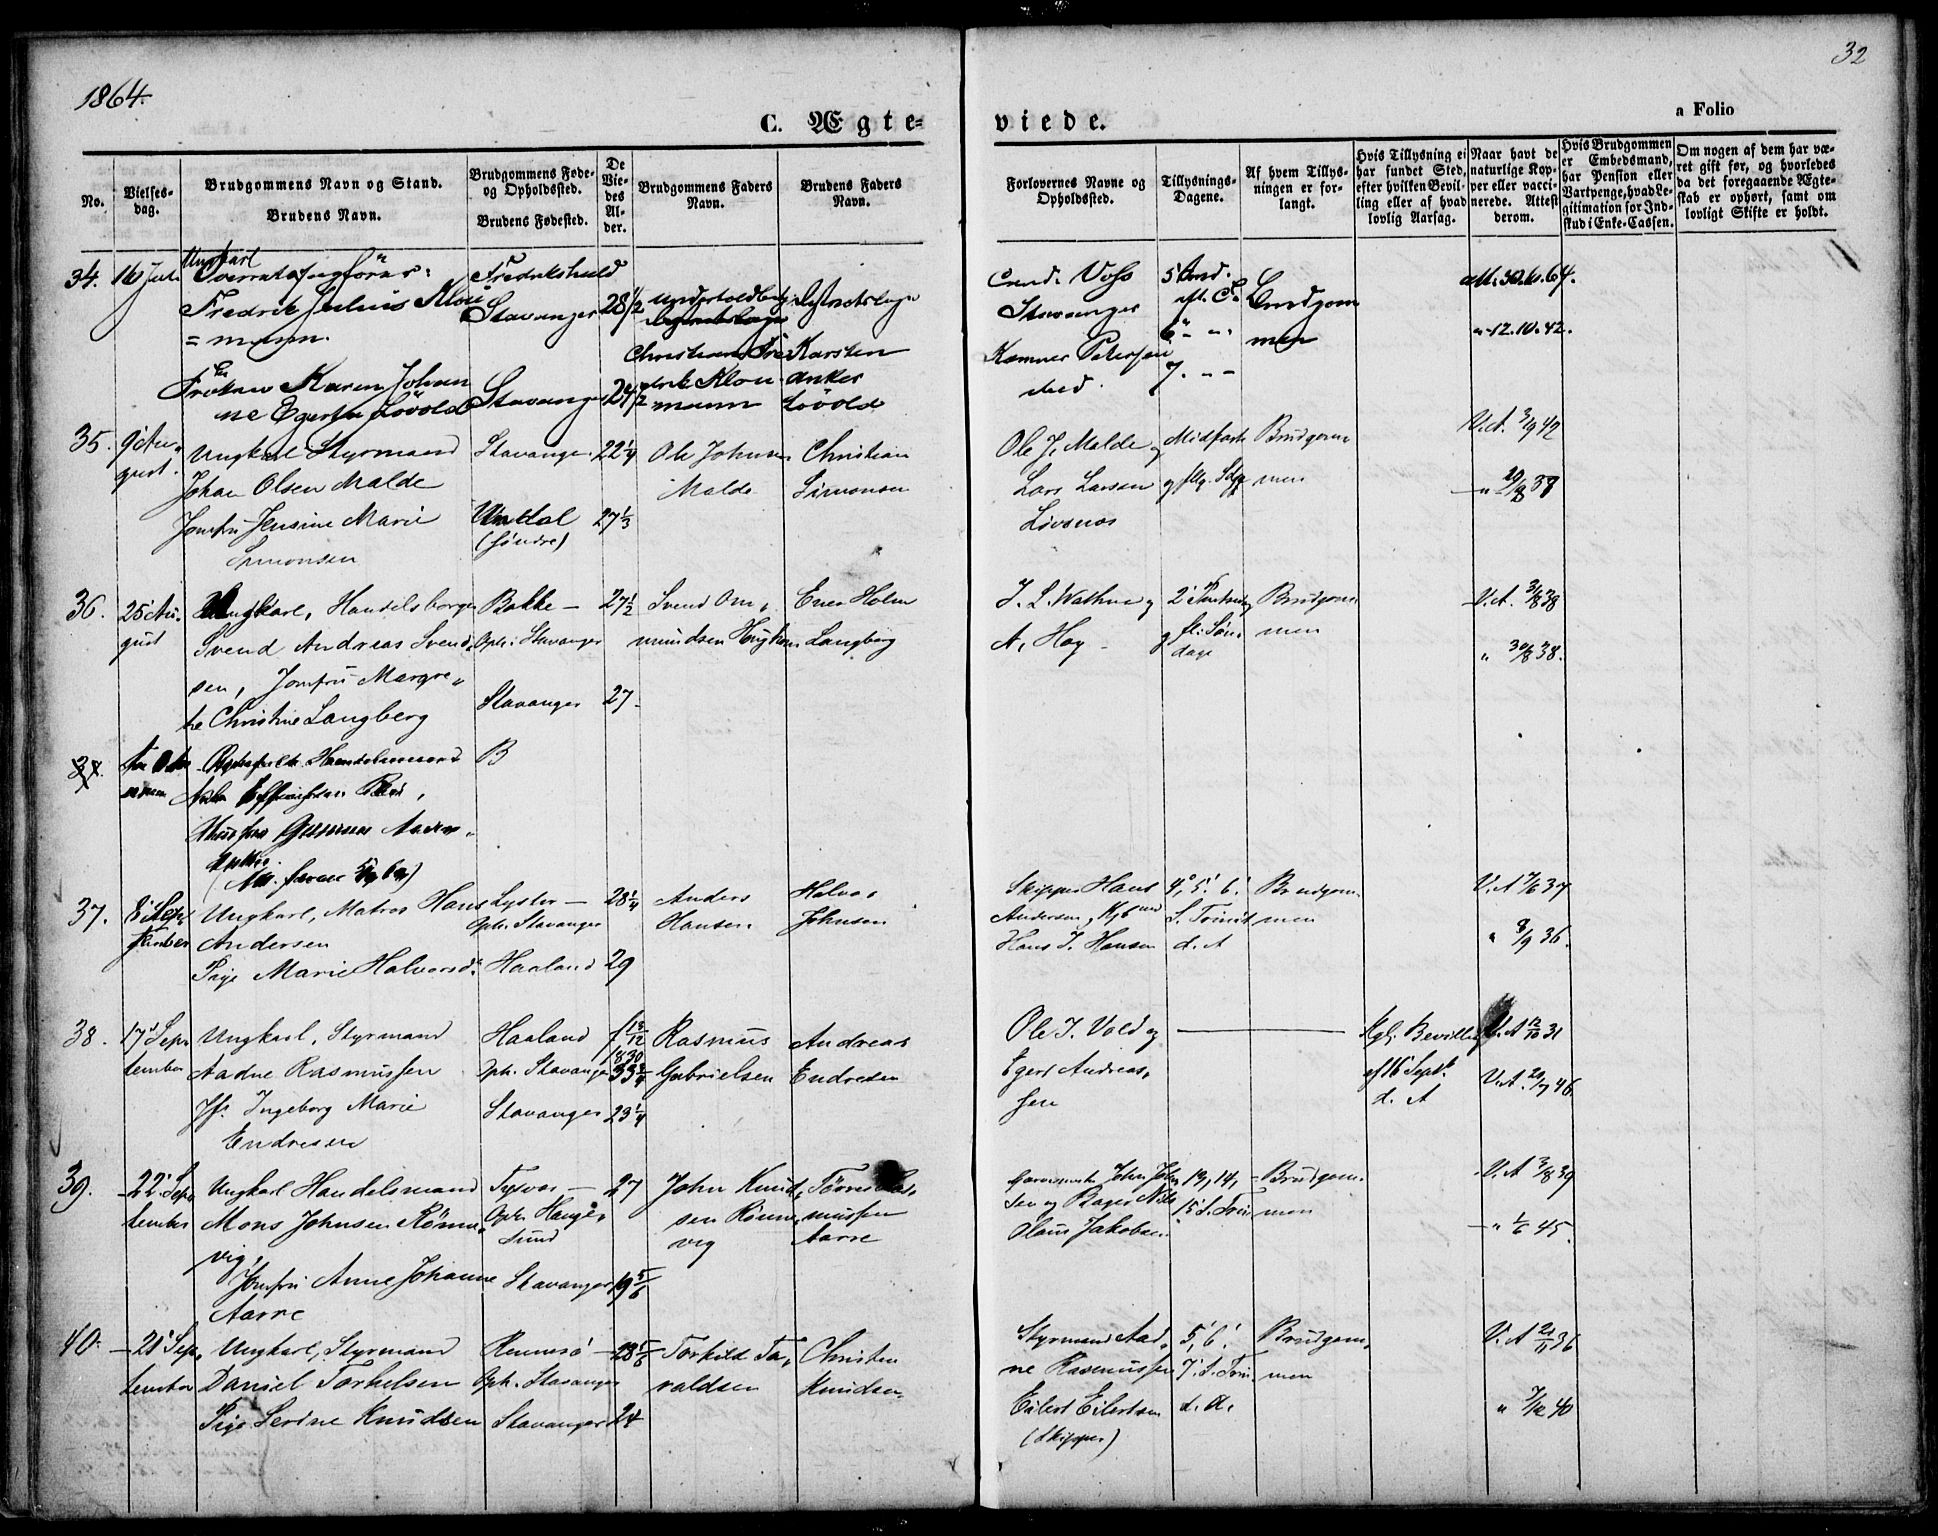 1864.
32
C. Ægte=
viede.
a Folio
No.
Vielses-
dag.
Brudgommens Navn og Stand.
Brudens Navn.
Brudgommens Føde-
og Opholdssted.
Brudens Fødested.
De
Vie-
des
Al-
der.
Brudgommens Faders
Navn.
Brudens Faders
Navn.
Forlovernes Navne og
Opholdssted.
Tillysnings-
Dagene.
Af hvem Tillys-
ningen er for-
langt.
Hvis Tillysning ei
har fundet Sted,
efter hvilken Bevil-
ling eller af hvad
lovlig Aarsag.
Naar havt de
naturlige Kop-
per eller vacci-
nerede. Attest
derom.
Hvis Brudgommen
er Embedsmand,
har Pension eller
Vartpenge, hvad Le-
gitimation for Ind-
skud i Enke-Cassen.
Om nogen af dem har væ-
ret gift før, og hvorledes
da det foregaaende Ægte-
skab er ophørt, samt om
lovligt Skifte er holdt.
34.
Ungkarl
Fredrik Julius Klou
= mann.
Frøken Karen Johan
ne Egertha Løvold
Fredrikshald
Stavanger
Stavanger
28 1/2
24 1/2
Christian Fre
drik Klou
mann
Karsten
Anker
Løvold
Cand. Voss
Stavanger
Kemner Petersen
sted.
6 " "
7. " "
Brudgom
men
" 12.10.42.
35.
9' Au-
gust.
Ungkarl Styrmand
Johan Olsen Malde
Jomfru Jensine Marie
Simonsen
Stavanger
Undal
(søndre)
22 1/4
27 1/3
Ole Johnsen
Malde
Christian
Simonsen
Ole J. Malde og
Lars Larsen
Midfaste
Brudgom-
men
V.A. 3/9 42
36.
25' Au-
gust
Ungkarl, Handelsborger
Svend Andreas Svend-
sen, Jomfru Margre-
the Christine Langberg
Bakke —
Oph: Stavanger
Stavanger
27 1/2
27
Svend Om-
mundsen
Ener Holm
Langberg
J. L. Wathne og
A. Hog
2' Pintsedag
og fl. Søn-
dage
Brudgom-
men
V.A. 3/8 38
" 30/8 38.
B
37.
8' Sep-
tember
Ungkarl, Matros Hans
Andersen
Pige Marie Halvorsd.
Lyster —
Oph. Stavanger
Haaland
28 1/4
29
Anders
Hansen
Halvor
Johnsen
Skipper Hans
Andersen og Kjbmd
Hans J. Hansen
4', 5', 6',
S. Trinit
d. A
Brudgom-
men
V.A 7/6 37
" 8/9 36.
38.
17' Sep-
tember
Ungkarl, Styrmand
Aadne Rasmussen
Jfr. Ingeborg Marie
Endresen
Haaland
Oph. Stavanger
Stavanger
f 13/12
1830
33 3/4
23 1/4
Rasmus
Gabrielsen
Andreas
Endresen
Ole J. Vold og
Egert Andreas-
sen
Kgl. Bevilling
af 16' Septb.
d. A
V.A 12/10 31
V.A. 20/7 46.
39.
22' Sep-
tember
Ungkarl Handelsmand
Mons Johnsen Rønne-
vig,
Jomfru Anne Johanne
Aarre
Tysvær —
Oph. Hauge-
sund
Stavanger
27
19 5/6
John Knud-
sen Rønne-
vig
Tørres Ras-
mussen
Aarre
John John-
sen og Bager Nils
Olaus Jakobsen
13, 14,
15' S. Trin
Brudgom-
men
V.A 3/8 39
— " 1/6 45.
40.
21' Sep-
tember
Ungkarl, Styrmand
Daniel Torkelsen
Pige Serine Knudsen
Rennesø —
Oph. Stavanger
Stavanger
28 1/6
24
Torkild To-
raldsen
Christen
Knudsen
Styrmand Aad-
ne Rasmussen
Eilert Eilertsen
(Skipper)
5', 6',
7' S. Trin
d. A.
Brudgom-
men
V. A 21/11 36
" 7/12 40